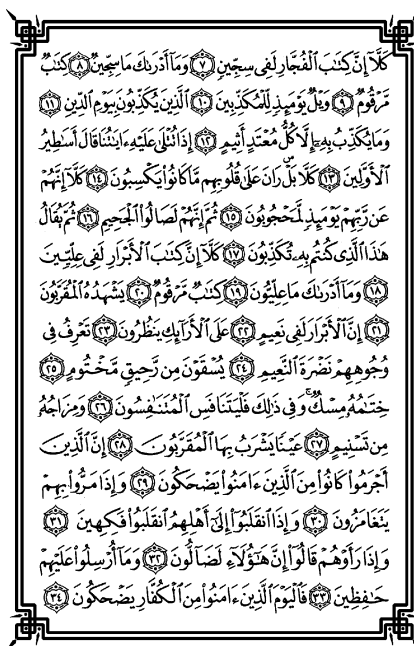 كَلَّآ إِنَّ كِتَٰبَ ٱلْفُجَّارِ لَفِى سِجِّينٍ ٧ وَمَآ أَدْرَىٰكَ مَا سِجِّينٌ ٨ كِتَٰبٌ
مَّرْقُومٌ ٩ وَيْلٌ يَوْمَئِذٍ لِّلْمُكَذِّبِينَ ١٠ ٱلَّذِينَ يُكَذِّبُونَ بِيَوْمِ ٱلدِّينِ ١١
وَمَا يُكَذِّبُ بِهِۦٓ إِلَّا كُلُّ مُعْتَدٍ أَثِيمٍ ١٢ إِذَا تُتْلَىٰ عَلَيْهِ ءَايَٰتُنَا قَالَ أَسَٰطِيرُ
ٱلْأَوَّلِينَ ١٣ كَلَّا بَلْ ۜ رَانَ عَلَىٰ قُلُوبِهِم مَّا كَانُوا۟ يَكْسِبُونَ ١٤ كَلَّآ إِنَّهُمْ
عَن رَّبِّهِمْ يَوْمَئِذٍ لَّمَحْجُوبُونَ ١٥ ثُمَّ إِنَّهُمْ لَصَالُوا۟ ٱلْجَحِيمِ ١٦ ثُمَّ يُقَالُ
هَٰذَا ٱلَّذِى كُنتُم بِهِۦ تُكَذِّبُونَ ١٧ كَلَّآ إِنَّ كِتَٰبَ ٱلْأَبْرَارِ لَفِى عِلِّيِّينَ
١٨ وَمَآ أَدْرَىٰكَ مَا عِلِّيُّونَ ١٩ كِتَٰبٌ مَّرْقُومٌ ٢٠ يَشْهَدُهُ ٱلْمُقَرَّبُونَ
٢١ إِنَّ ٱلْأَبْرَارَ لَفِى نَعِيمٍ ٢٢ عَلَى ٱلْأَرَآئِكِ يَنظُرُونَ ٢٣ تَعْرِفُ فِى
وُجُوهِهِمْ نَضْرَةَ ٱلنَّعِيمِ ٢٤ يُسْقَوْنَ مِن رَّحِيقٍ مَّخْتُومٍ ٢٥
خِتَٰمُهُۥ مِسْكٌ ۚ وَفِى ذَٰلِكَ فَلْيَتَنَافَسِ ٱلْمُتَنَٰفِسُونَ ٢٦ وَمِزَاجُهُۥ
مِن تَسْنِيمٍ ٢٧ عَيْنًا يَشْرَبُ بِهَا ٱلْمُقَرَّبُونَ ٢٨ إِنَّ ٱلَّذِينَ
أَجْرَمُوا۟ كَانُوا۟ مِنَ ٱلَّذِينَ ءَامَنُوا۟ يَضْحَكُونَ ٢٩ وَإِذَا مَرُّوا۟ بِهِمْ
يَتَغَامَزُونَ ٣٠ وَإِذَا ٱنقَلَبُوٓا۟ إِلَىٰٓ أَهْلِهِمُ ٱنقَلَبُوا۟ فَكِهِينَ ٣١
وَإِذَا رَأَوْهُمْ قَالُوٓا۟ إِنَّ هَٰٓؤُلَآءِ لَضَآلُّونَ ٣٢ وَمَآ أُرْسِلُوا۟ عَلَيْهِمْ
حَٰفِظِينَ ٣٣ فَٱلْيَوْمَ ٱلَّذِينَ ءَامَنُوا۟ مِنَ ٱلْكُفَّارِ يَضْحَكُونَ ٣٤